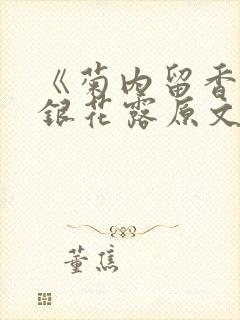 《菊内留香
银花露原文
董焦